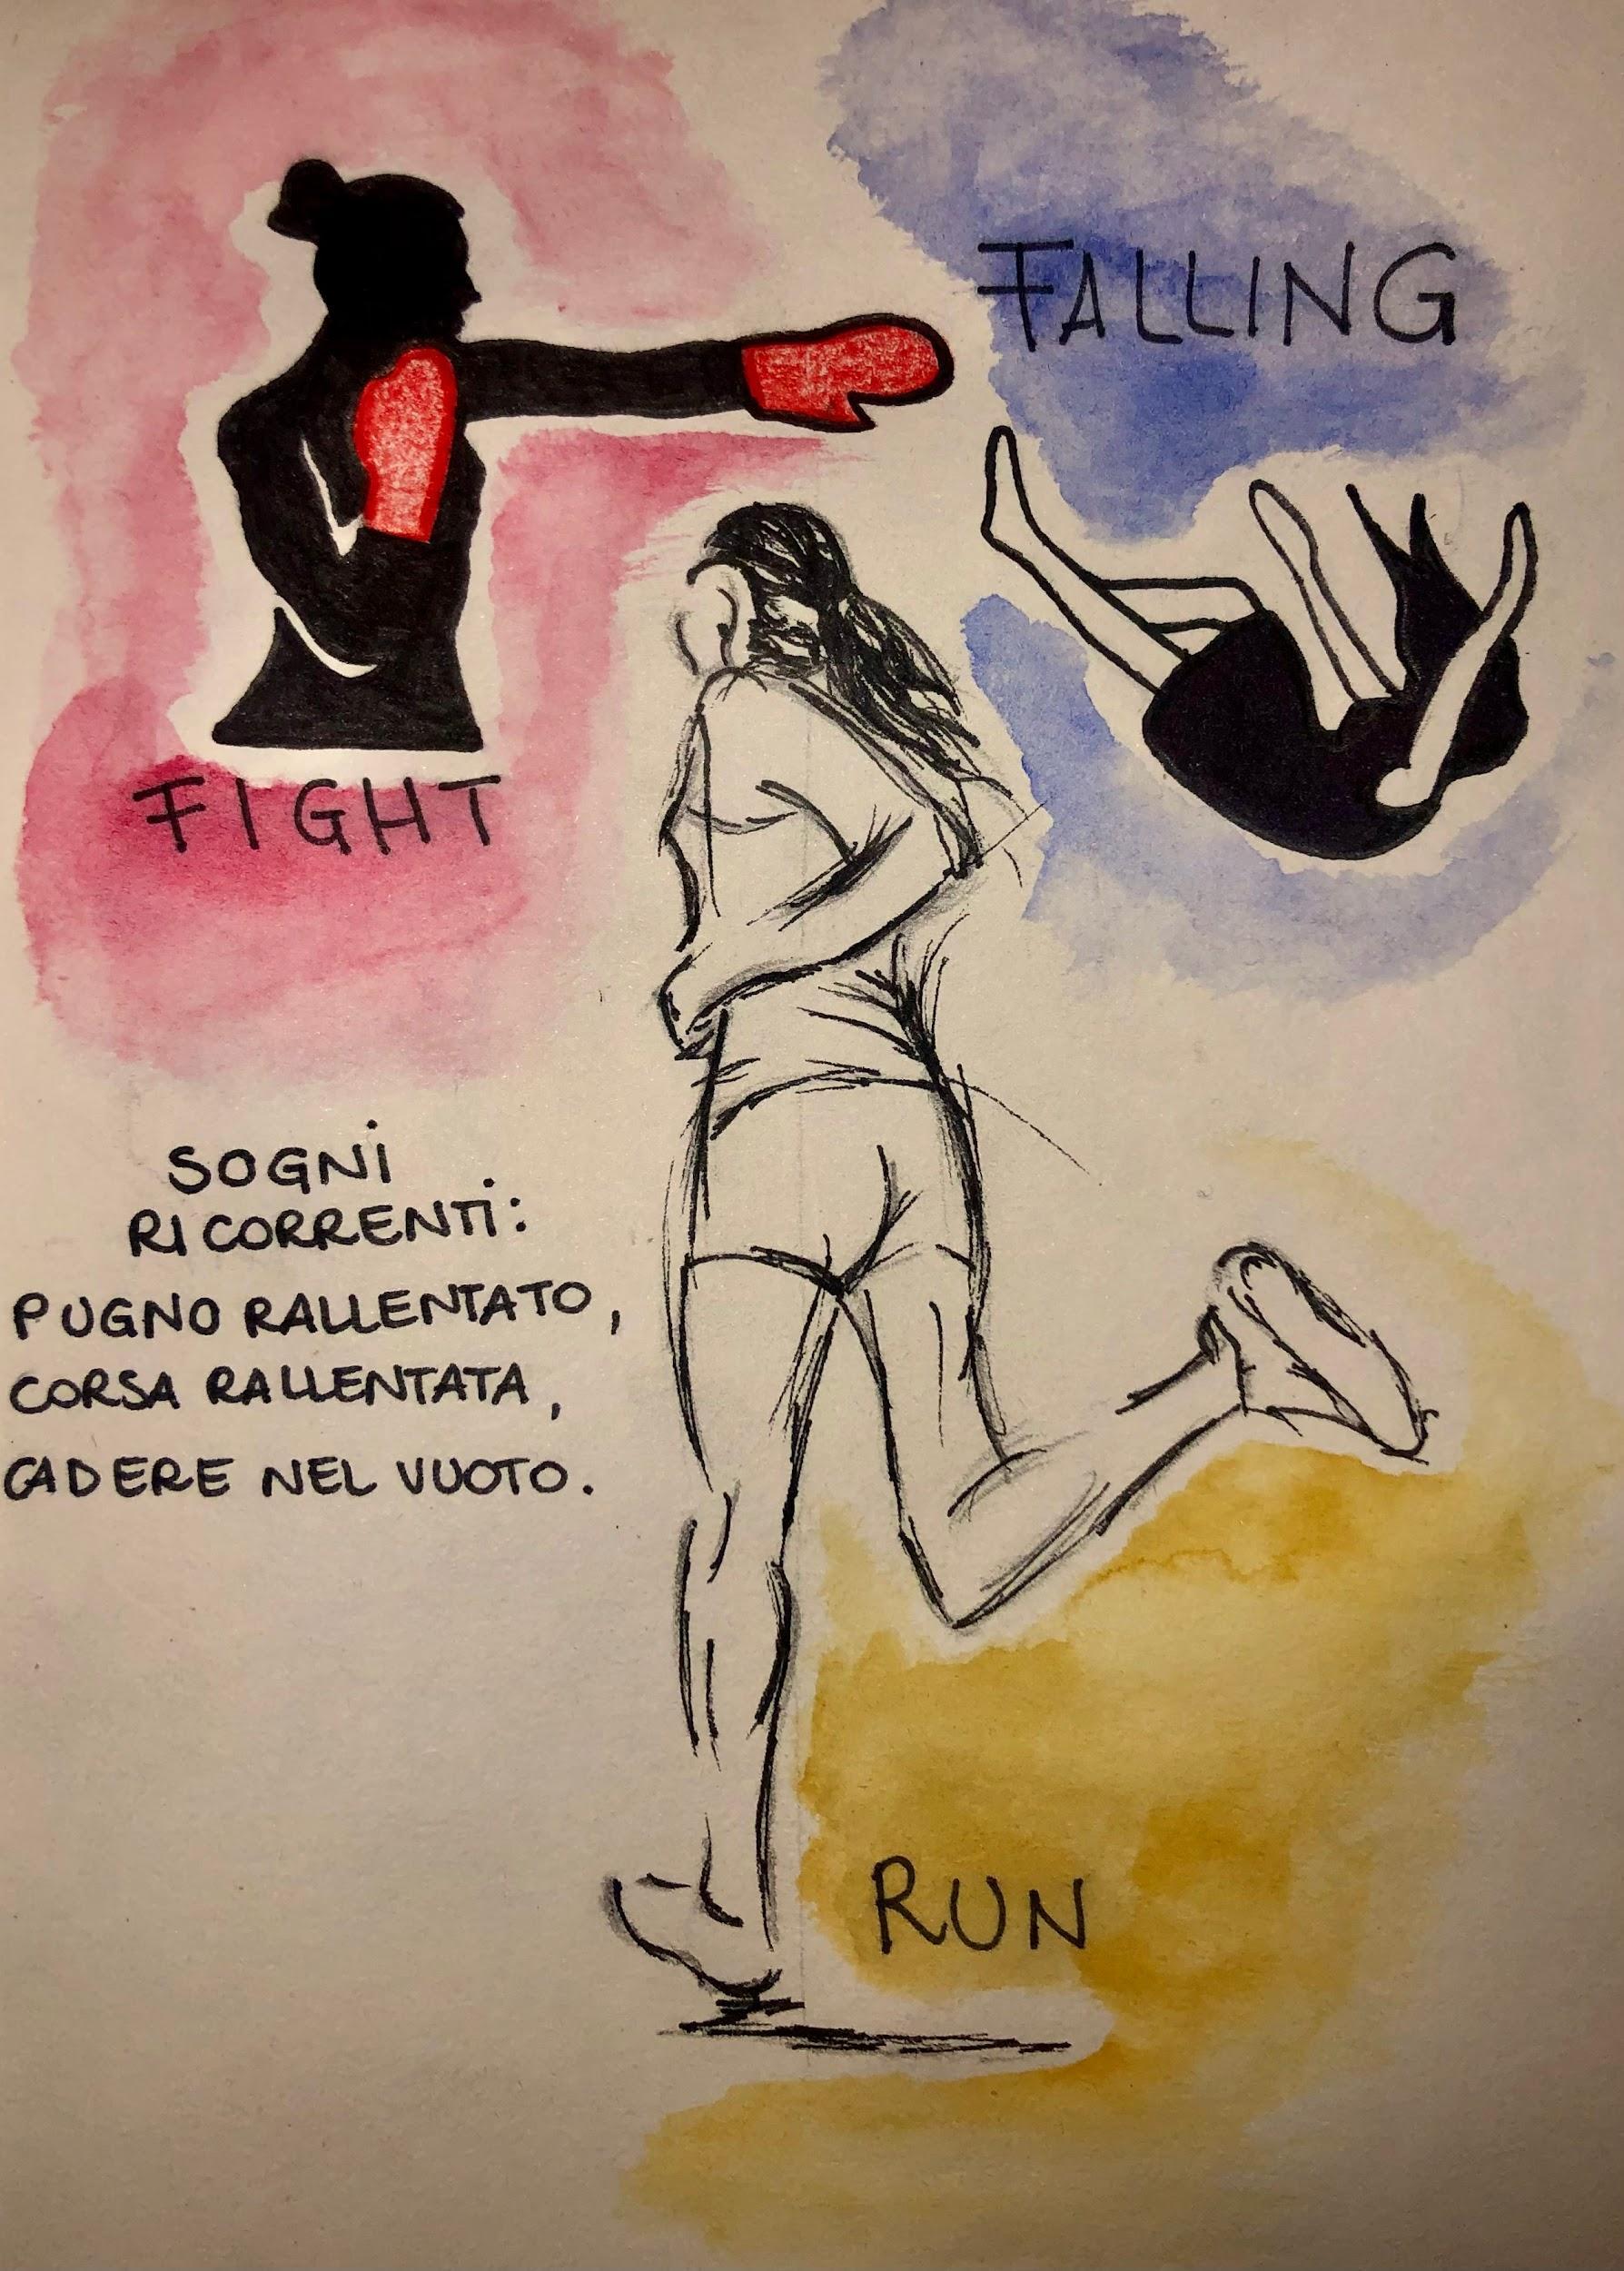 FALLING
FIGHT
SOGNI
RICORRENTI:
PUGNO RALLENTATO,
CORSA RALLENTATA,
CADERE NEL VUOTO.
RUN